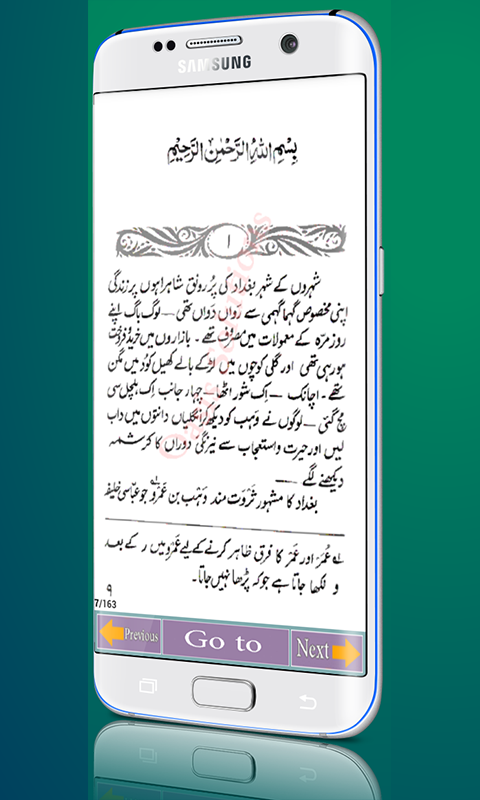 SAMSUNG
بِسْمِ اللّٰهِ الرَّحْمٰنِ الرَّحِيْمِ
۱
شہروں کے شہر بغداد کی پُر رونق شاہراہوں پر زندگی
اپنی مخصوص گہما گہمی سے رواں دواں تھی — لوگ باگ اپنے
روز مرّہ کے معمولات میں مصروف تھے۔ بازاروں میں خرید و فروخت
ہو رہی تھی اور گلی کوچوں میں لڑکے بالے کھیل کود میں مگن
تھے۔ اچانک — اِک شور اٹھا — چہار جانب اِک ہلچل سی
مچ گئی — لوگوں نے وہب کو دیکھ کر انگلیاں دانتوں میں داب
لیں اور حیرت و استعجاب سے نیرنگیٔ دوراں کا کرشمہ
دیکھنے لگے —
بغداد کا مشہور ثروت مند وَہَب بن عَمرو لے جو عباسی خلیفہ
لے عُمَر اور عَمَر کا فرق ظاہر کرنے کے لیے عَمرو میں ر کے بعد
و لکھا جاتا ہے جو کہ پڑھا نہیں جاتا۔
۹
7/163
Previous
Go to
Next